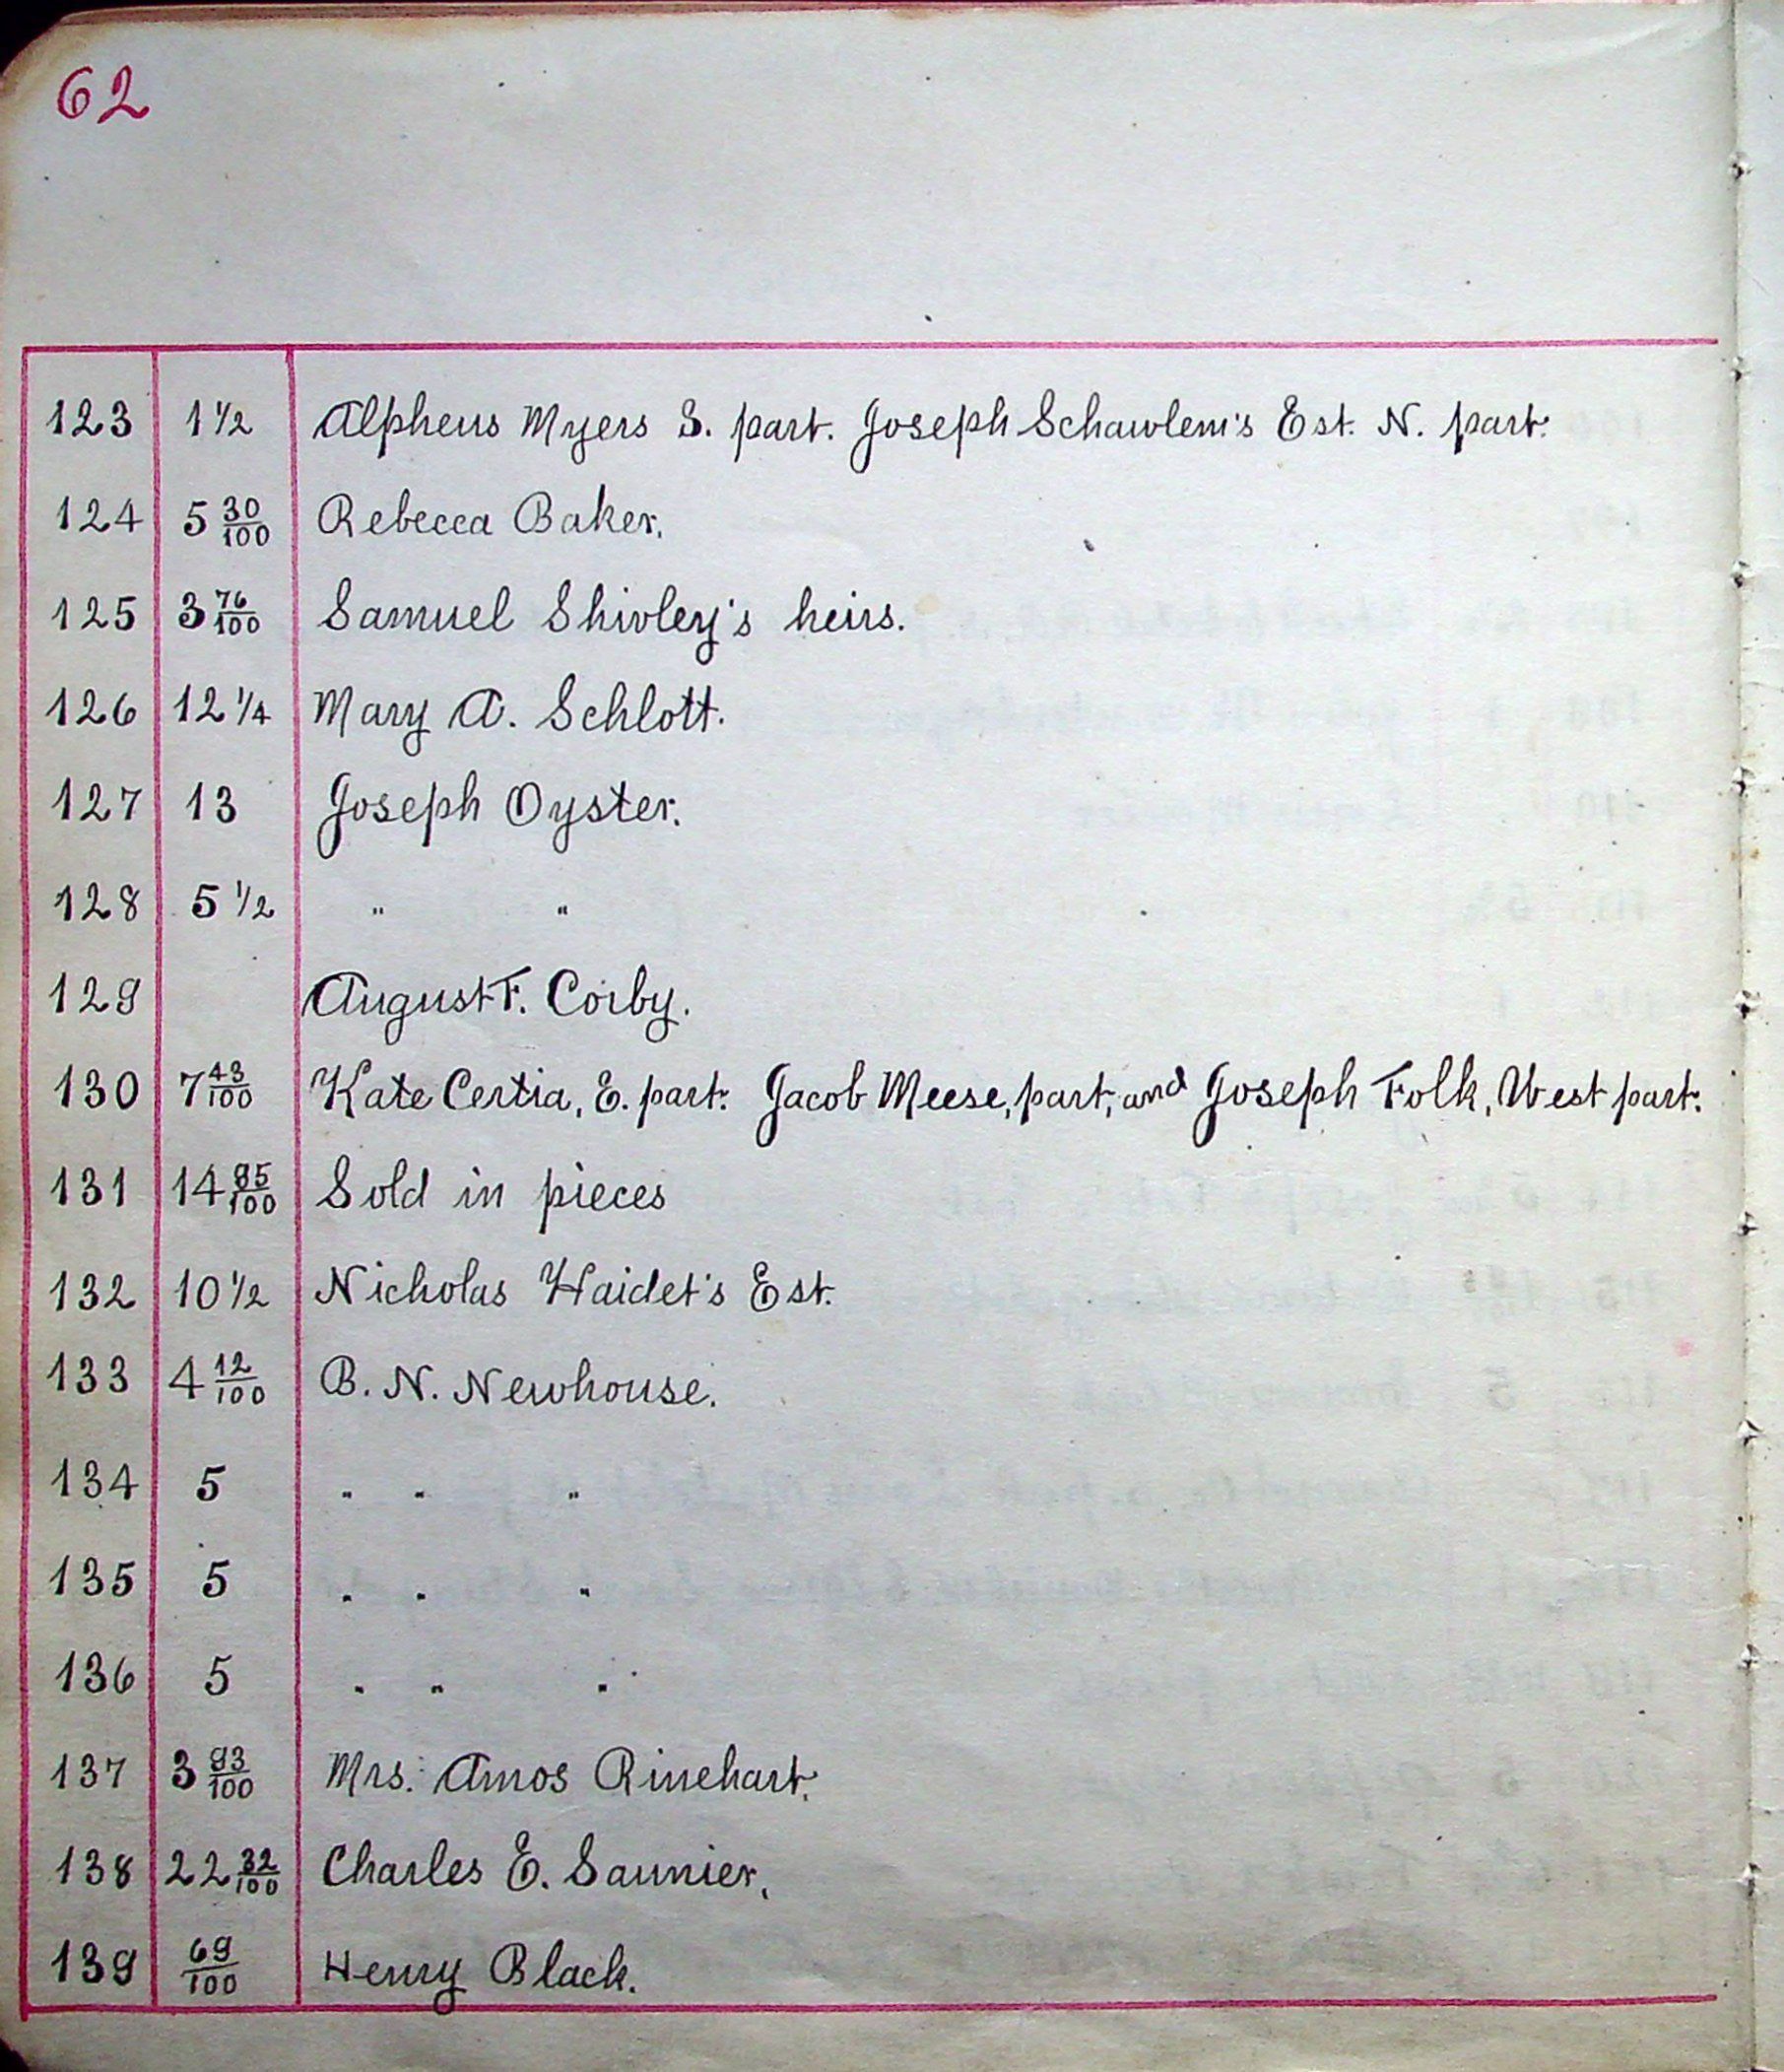 62
123 1 1/2 Alpheus Myers S. part. Joseph Schawlem's Est. N. part.
124 5 30/100 Rebecca Baker.
125 3 76/100 Samuel Shivley's heirs.
126 12 1/4 Mary A. Schlott.
127 13 Joseph Oyster.
128 5 1/2 " "
129 August F. Corby.
130 7 43/100 Kate Certia, E. part. Jacob Meese, part, and Joseph Folk, West part.
131 14 95/100 Sold in pieces
132 10 1/2 Nicholas Haidet's Est.
133 4 12/100 B. N. Newhouse.
134 5 " " "
135 5 " " "
136 5 " " "
137 3 93/100 Mrs. Amos Rinehart.
138 22 32/100 Charles E. Saunier.
139 69/100 Henry Black.